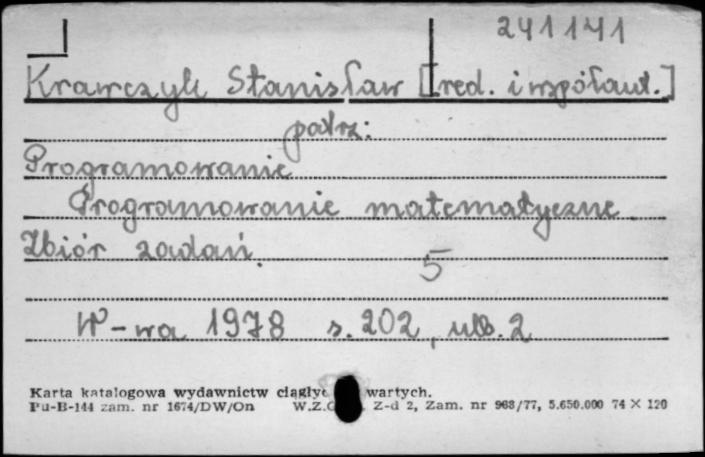 241141
Krawczyk Stanisław [red. i współaut.]
patrz:
Programowanie
Programowanie matematyczne.
Zbiór zadań.
5
W-wa 1978 s. 202, ulb. 2
Karta katalogowa wydawnictw ciągłyc wartych.
Pu-B-144 zam. nr 1674/DW/On W.Z.G Z-d 2, Zam. nr 968/77, 5.650.000 74 X 120